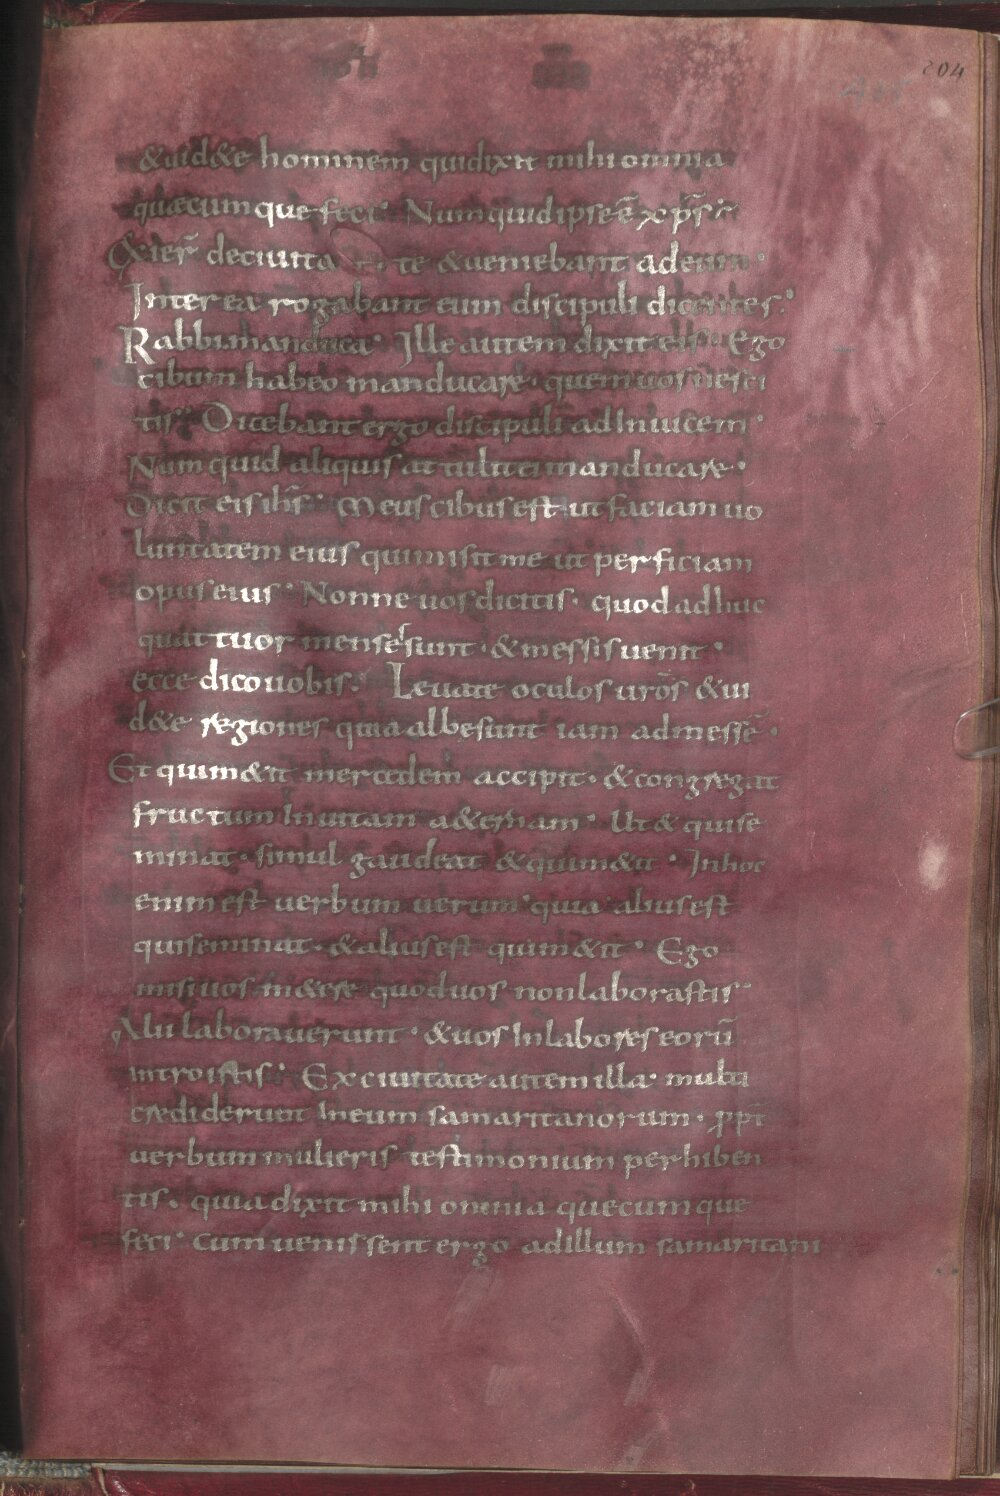 204
&uid&e hominem quidixit mihi omnia
quæcumque feci· Numquid ipse ē xp̄s·
Exier̄ deciuita te &ueniebant adeum·
Interea rogabant eum discipuli dicentes·
Rabbi manduca· Ille autem dixit eis· Ego
cibum habeo manducare· quem uos nesci
tis· Dicebant ergo discipuli adInuicem·
Numquid aliquis attulit ei manducare·
Dicit eis ih̄s· Meus cibus est ut faciam uo
luntatem eius qui misit me ut perficiam
opus eius· Nonne uos dicitis· quod adhuc
quattuor menses sunt· & messis uenit·
ecce dico uobis· Leuate oculos ur̄os &ui
d&e regiones quia albe sunt iam admessē·
Et quim&it mercedem accipit· &congregat
fructum Inuitam a&ernam· Ut & quise
minat· simul gaudeat &quim&it· Inhoc
enim est uerbum uerum· quia alius est
quiseminat· &alius est quim&it· Ego
misi uos m&ere quod uos non laborastis
Alii laborauerunt· &uos Inlabores eorū
introistis· Ex ciuitate autem illa· multi
crediderunt Ineum samaritanorum· ꝓpt̄
uerbum mulieris testimonium perhiben
tis· quia dixit mihi omnia quecumque
feci· Cum uenissent ergo adillum samaritani